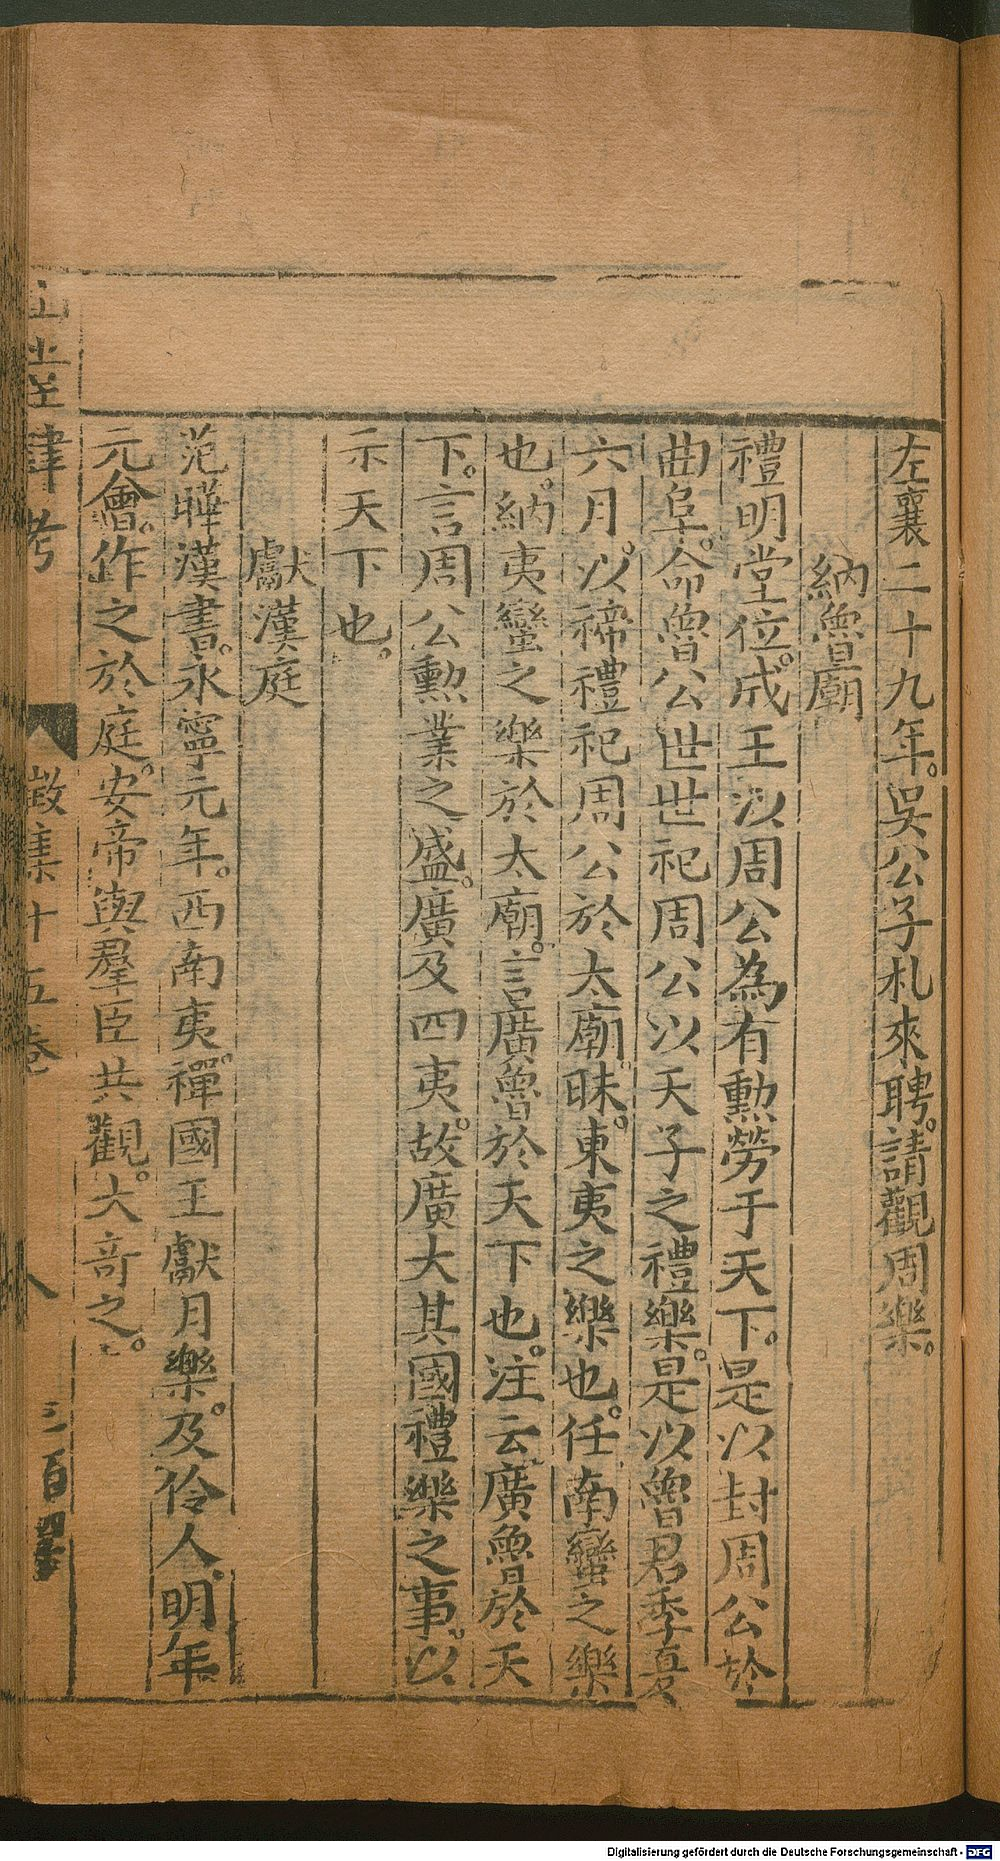 左襄二十九年。吳公子札來聘。請觀周樂。
納魯廟
禮明堂位。成王以周公為有勲勞于天下。是以封周公於
曲阜。命魯公世世祀周公以天子之禮樂。是以魯君季夏
六月。以禘禮祀周公於太廟。昧。東夷之樂也。任南蠻之樂
也。納夷蠻之樂於太廟。言廣魯於天下也。注云廣魯於天
下。言周公勲業之盛。廣及四夷。故廣大其國禮樂之事。以
示天下也。
獻漢庭
范曄漢書。永寧元年。西南夷。禪國王獻月樂。及伶人。明年
元會。作之於庭。安帝與羣臣共觀。大奇之。
肆考
徵集十五卷
八
三百
Digitalisierung gefördert durch die Deutsche Forschungsgemeinschaft - DFG